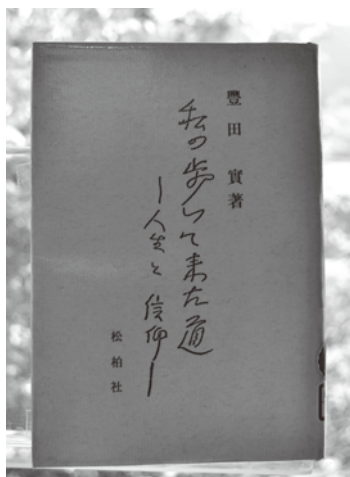 豐田實著
私の歩いて来た道
―人生と信仰―
松柏社